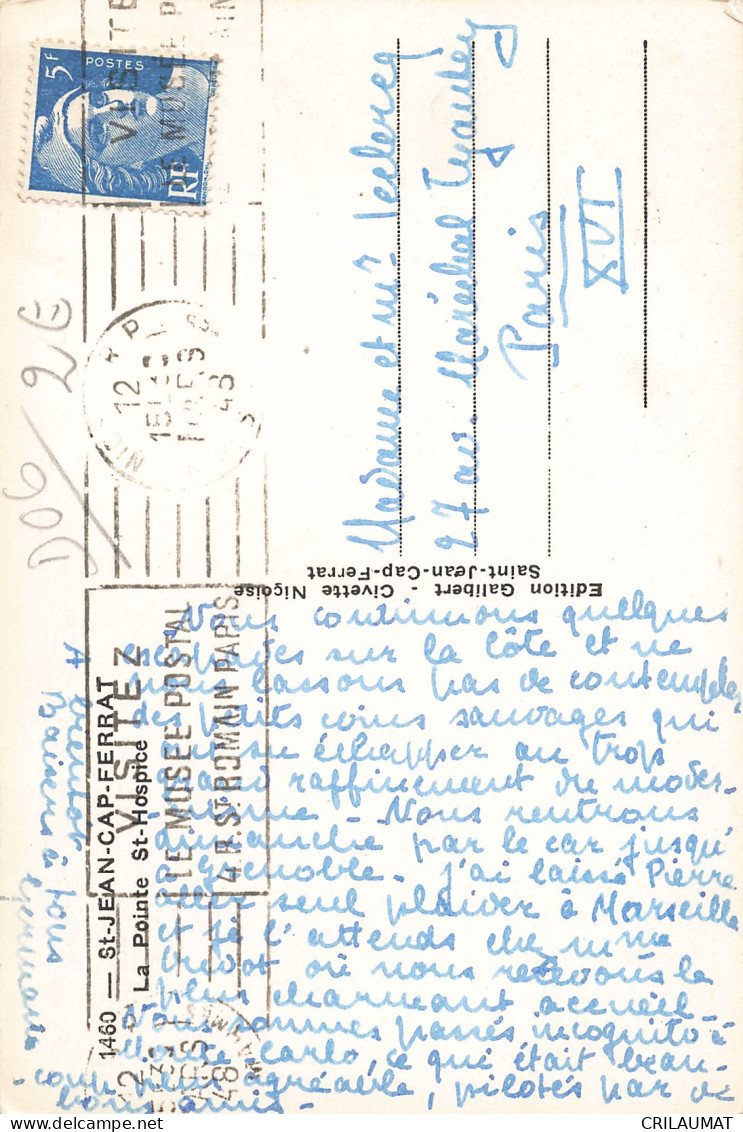 POSTES
5F
RF
VISITEZ
LE MUSEE P
12
15
48
Madame et Mr Leclercq
27 av. Maréchal
Paris
XVI
206/
2E
Edition Galibert - Civette Niçoise
Saint-Jean-Cap-Ferrat
1460 — St-JEAN-CAP-FERRAT
La Pointe St-Hospice
VISITEZ
LE MUSEE POSTAL
4 R. St ROMAIN PARIS
Nous continuons quelques
escapades sur la côte et ne
nous lassons pas de contempler
des petits coins sauvages qui
ont su échapper au trop
grand raffinement du moder-
nisme - Nous rentrons
dimanche par le car jusqu'
à Grenoble. J'ai laissé Pierre
aller seul plaider à Marseille
et je l'attends chez Mme
où nous recevons le
plus charmant accueil -
Nous sommes passés incognito à
Monte Carlo, ce qui était beau-
coup plus agréable, pilotés par de
bons amis -
A bientôt
Baisers à vous
Germaine
CRILAUMAT